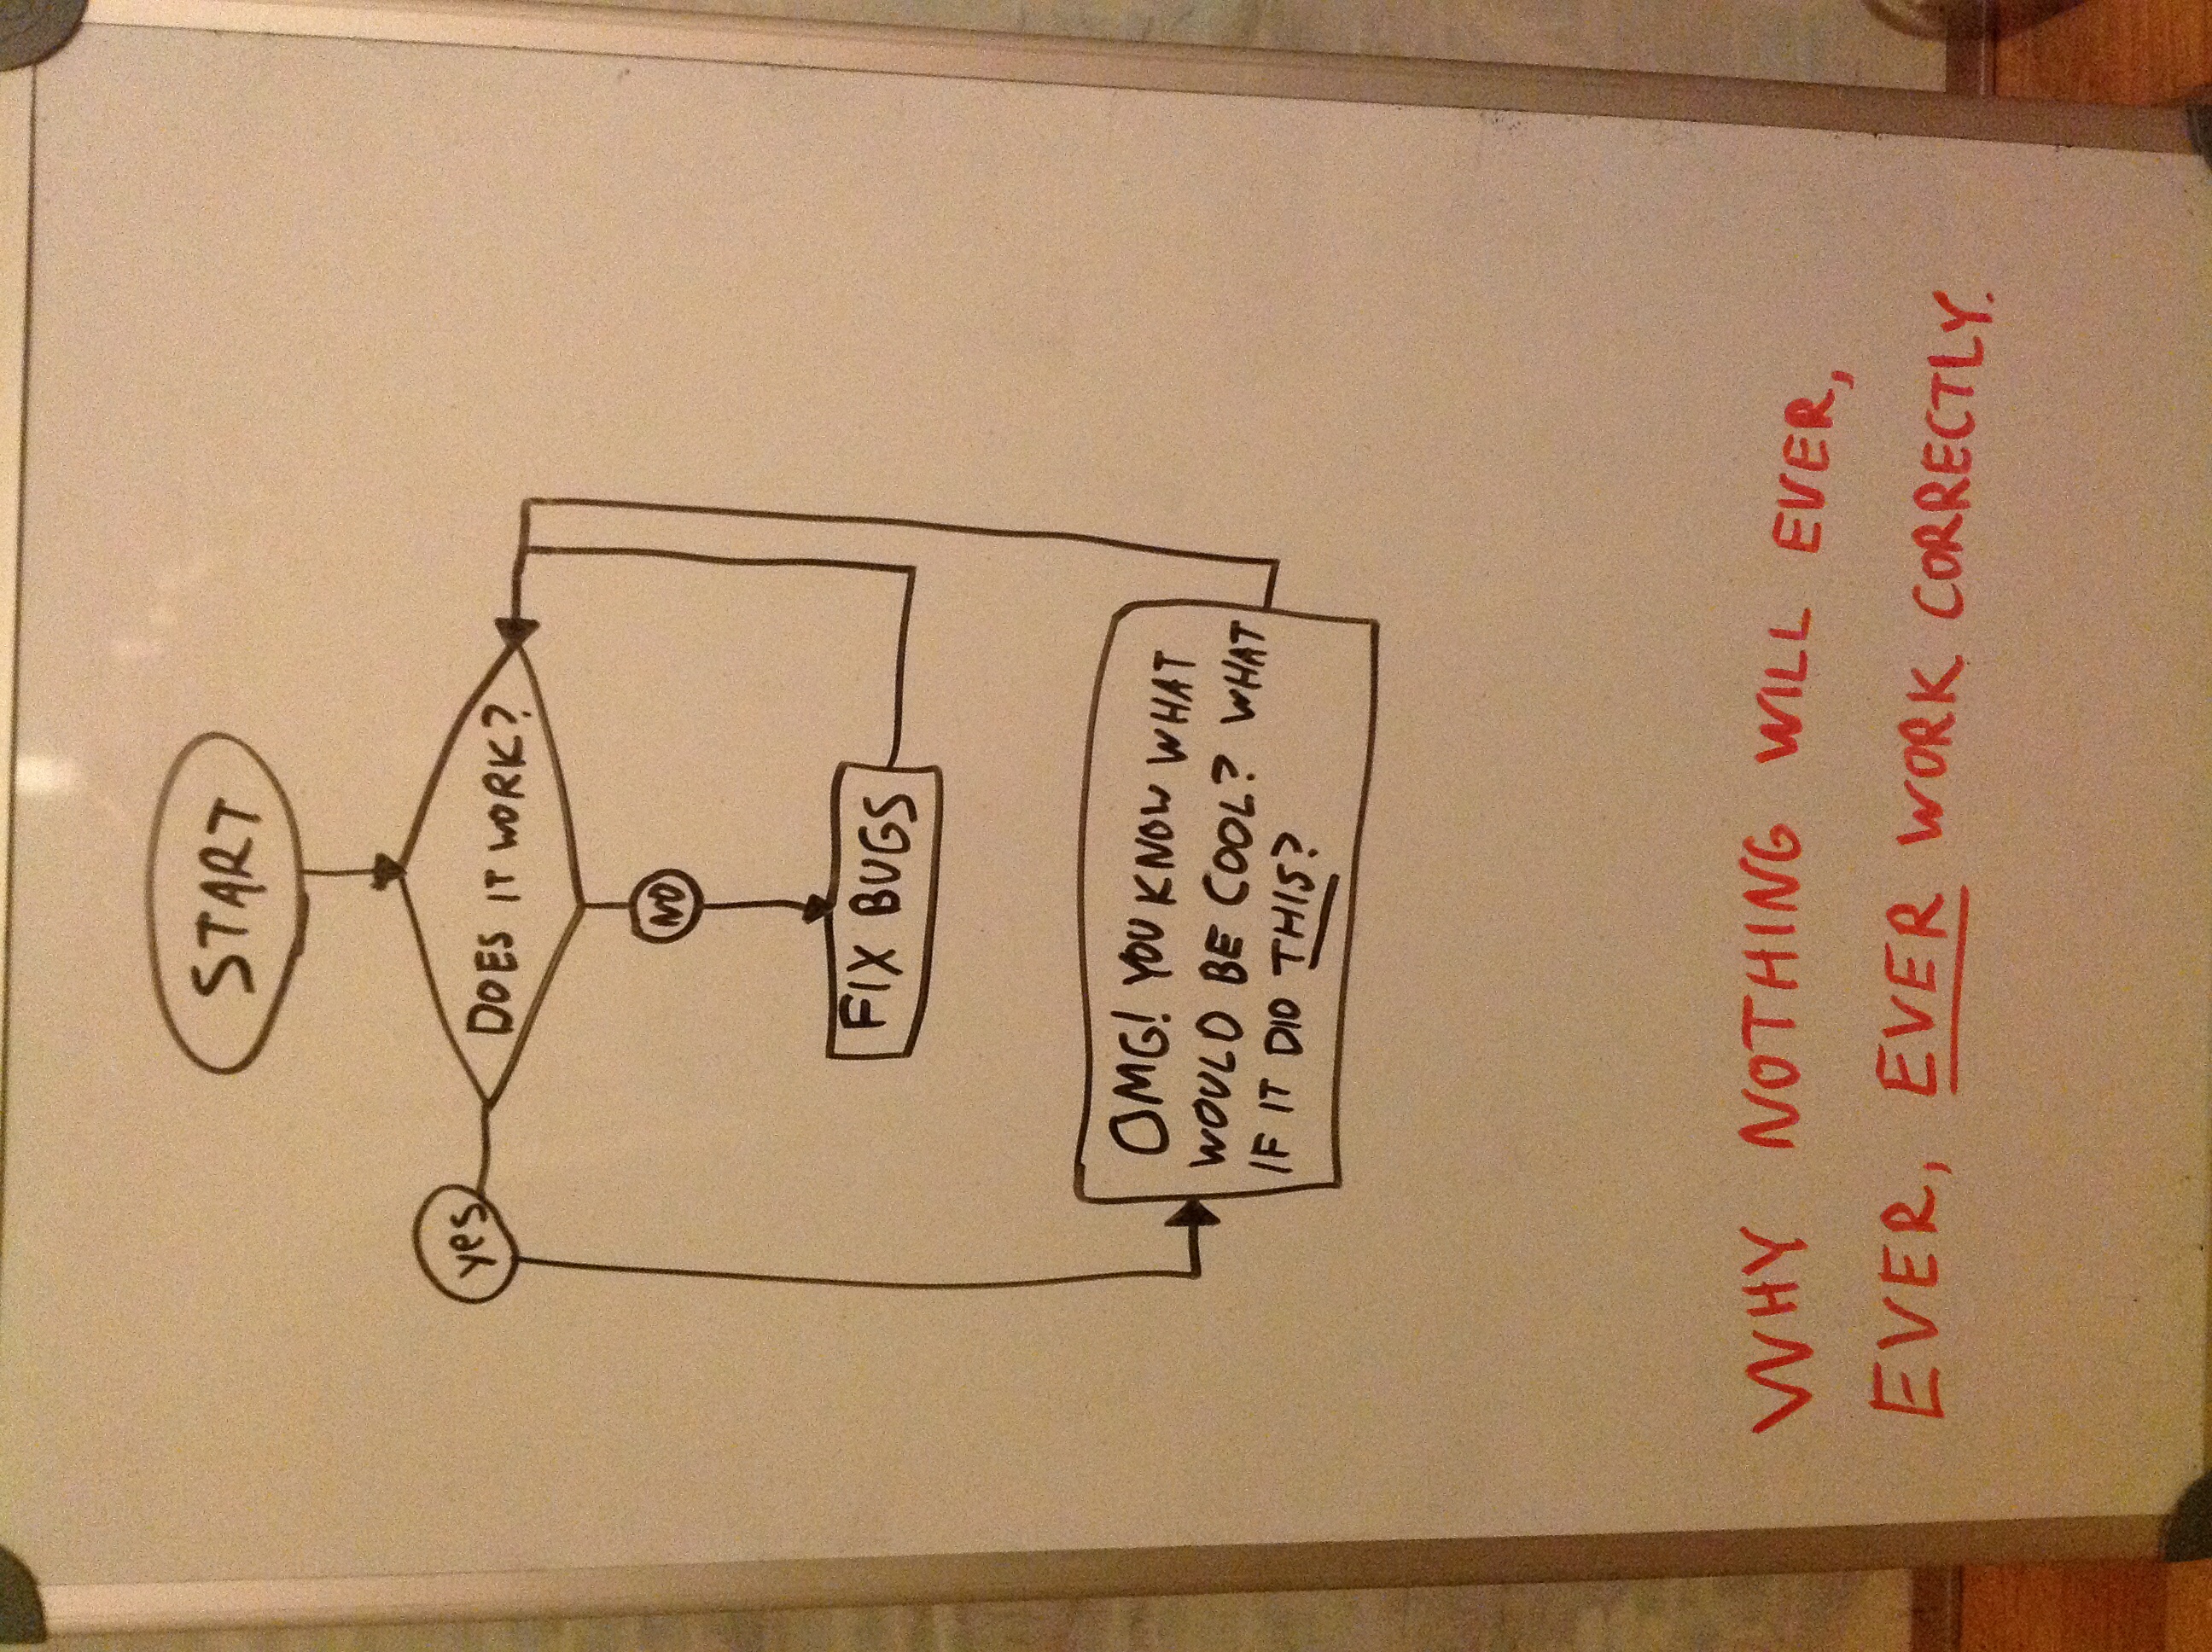 START
yes
DOES IT WORK?
NO
FIX BUGS
OMG! YOU KNOW WHAT
WOULD BE COOL? WHAT
IF IT DID THIS?
WHY NOTHING WILL EVER,
EVER, EVER WORK CORRECTLY.